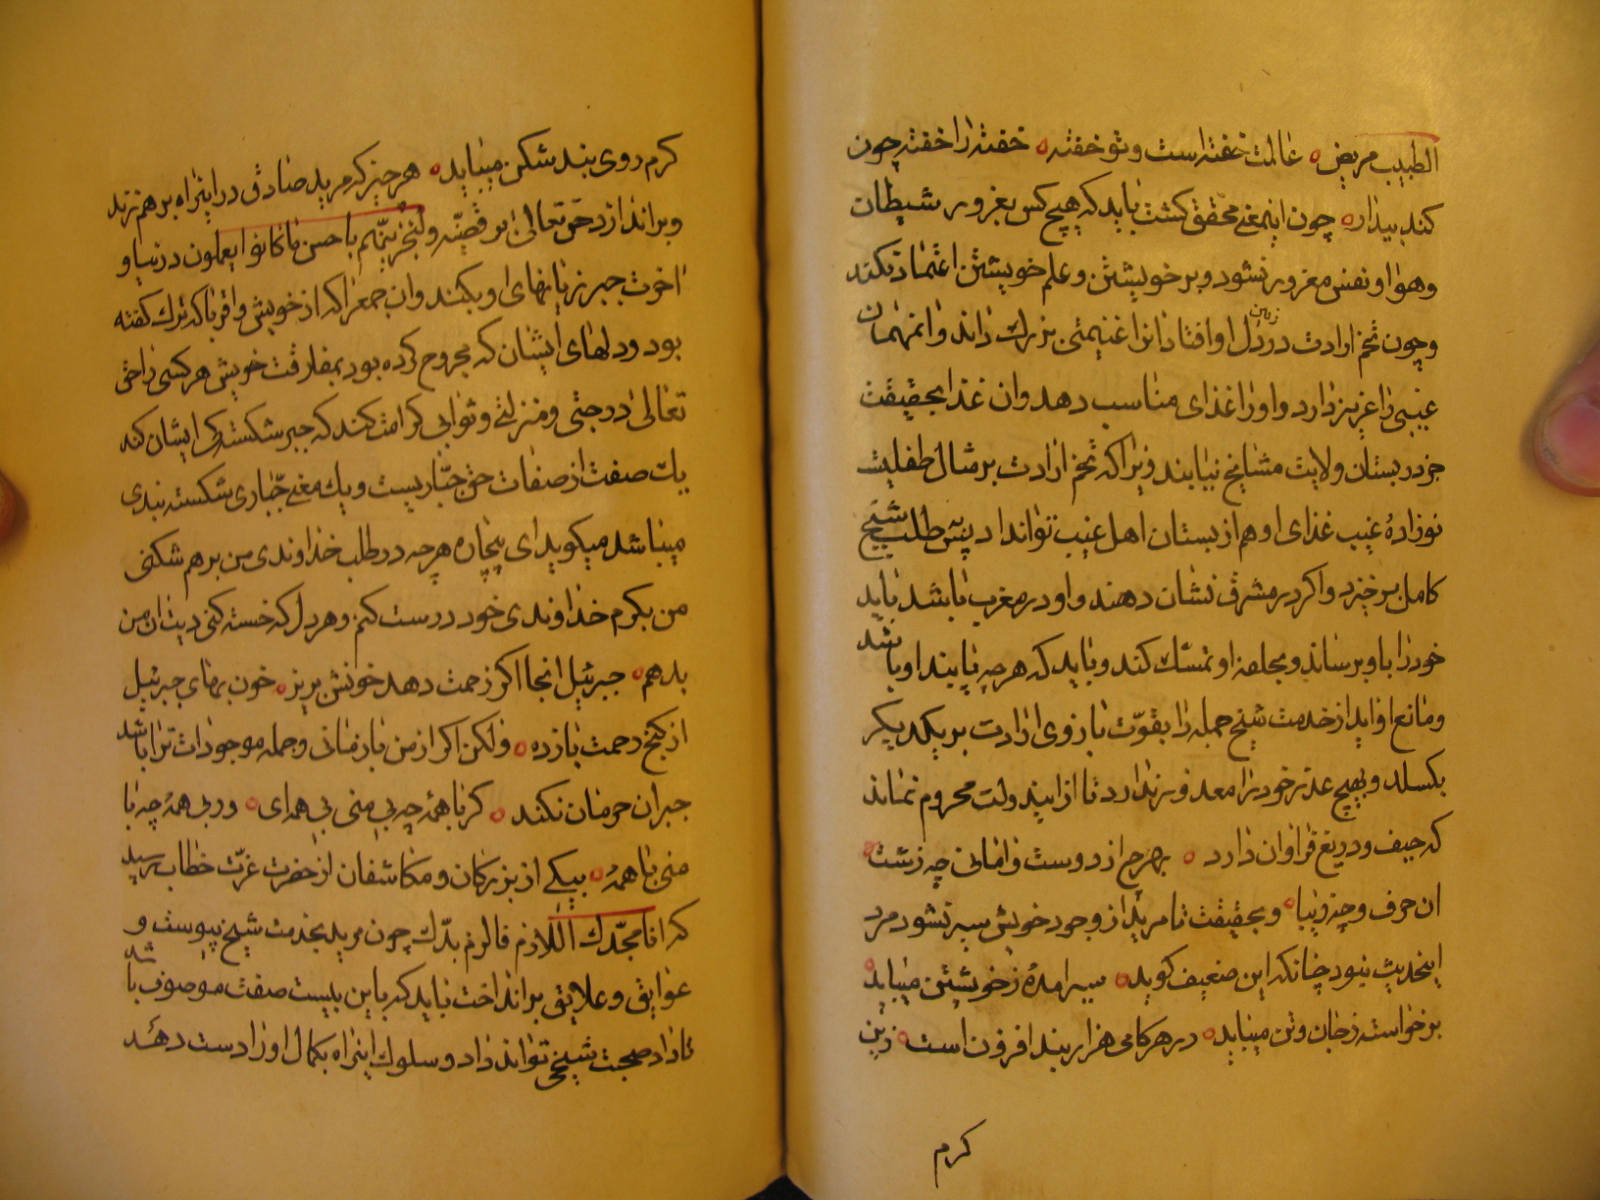 الطبیب مریض عالمت خفته است وتو خفته خفته را خفته چون
کند بیدار چون اینمعنی محقق کشت باید که هیچ کس بغرور شیطان
وهوا و نفس مغرور نشود و بر خویشتن و علم خویشتن اعتماد نکند
وچون تخم ارادت در زمین دل او افتاد انرا غنیمتی بزرک داند وان مهمان
غیبی را عزیز دارد و او را غذای مناسب دهد وان غذا بحقیقت
جز در بستان ولایت مشایخ نیابند زیرا که تخم ارادت بر مثال طفلیست
نوزادهٔ غیب غذای او هم از بستان اهل غیب تواند اد پس بطلب شیخ
کامل بر خیزد و اکر در مشرق نشان دهند و او در مغرب باشد باید
خود را باو برساند و بخدمة او تمسک کند و باید که هرچه پایبند او باشد
ومانع او اید از خدمت شیخ جمله را بقوّت بازوی ارادت بر یکدیکر
بکسلد و بهیچ عذر خود را معذور ندارد تا از این دولت محروم نماند
که حیف و دریغ فراوان دارد بهرچ از دوست وامانی چه زشت
ان حرف و چه زیبا و بحقیقت تا مرید از وجود خویش سیر نشود مرد
اینحدیث نبود چنانکه این ضعیف کوید سیر امدهٔ ز خویشتن میباید
برخواسته ز جان و تن میباید در هر کامی هزار بند افزون است زین
کرم
کرم روی بند شکن میباید هر چیز که مرید صادق در این راه بر هم زند
وبر اندازد حق تعالی بر قضیّه ولنجزینّهم باحسن ما کانوا یعملون در دنیا و
اخرت جبر زیانهای او بکند وان جمع را که از خویش و اقربا که ترك کفته
بود و دلهای ایشان که مجروح کرده بود بمفارقت خویش هر کسی را حق
تعالی درجتی و منزلتی و ثوابی کرامت کند که جبر شکستکی ایشان کند
یك صفت از صفات حق جبّاریست و یك معنی جبّاری شکسته بندی
میباشد میکوید ای بیچاره هرچه در طلب خداوندی من بر هم شکنی
من بکرم خداوندی خود درست کنم و هر دل که خسته کنی دیت ان من
بدهم جبرئیل انجا اکر زحمت دهد خونش بریز خون بهای جبرئیل
از کنج رحمت بازده ولکن اکر از من بازمانی و جمله موجودات ترا باشد
جبران حرمان نکند کر با همهٔ چه بی منی بی همهای ور بی همهٔ چه با
منی با همهٔ بیکی از بزرکان و مکاشفان از حضرت عزّت خطاب رسید
که انا مجدّك اللازم فالزم بدّك چون مرید بخدمت شیخ پیوست و
عوایق و علایق بر انداخت باید که باین بیست صفت موصوف باشد
تا داد صحبت شیخ تواند داد و سلوك این راه بکمال او را دست دهد